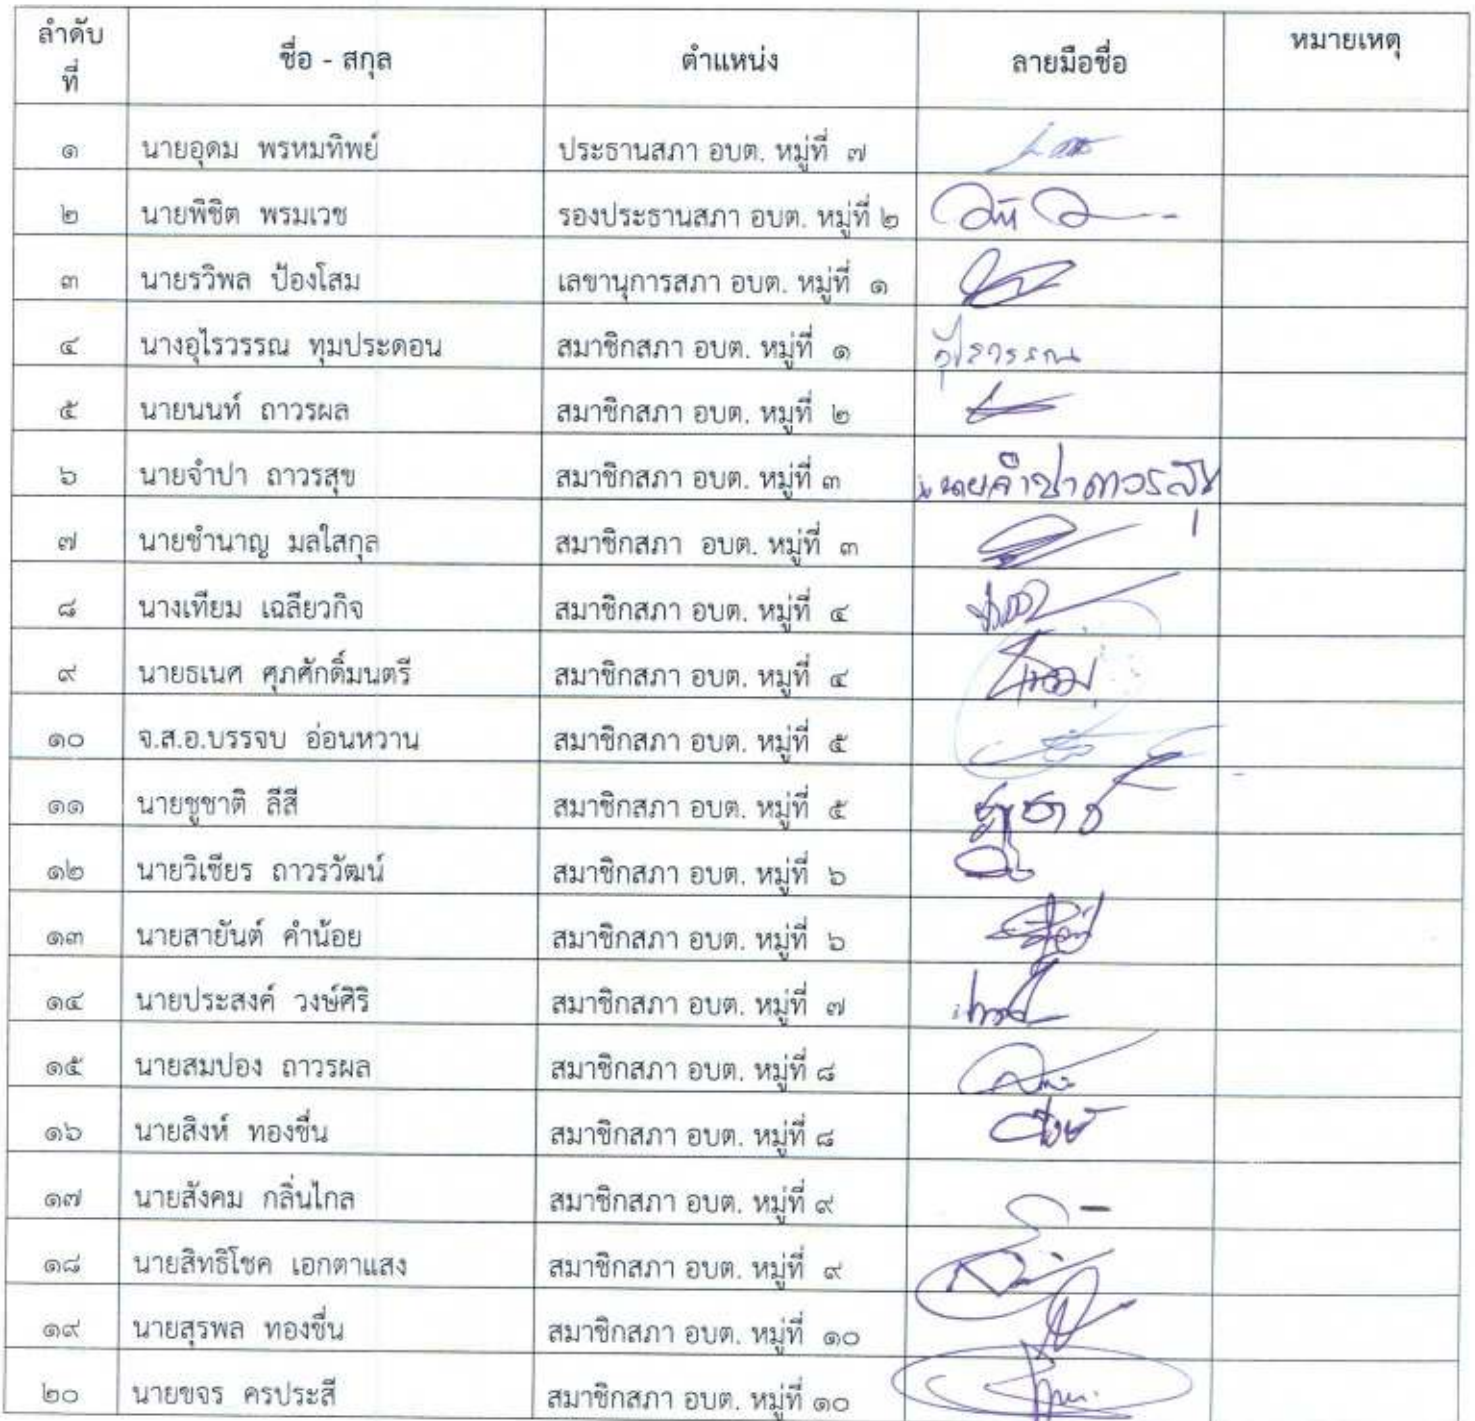 ลำดับที่ ชื่อ - สกุล ตำแหน่ง ลายมือชื่อ หมายเหตุ
๑ นายอุดม พรหมทิพย์ ประธานสภา อบต. หมู่ที่ ๗
๒ นายพิชิต พรมเวช รองประธานสภา อบต. หมู่ที่ ๒
๓ นายรวิพล ป้องโสม เลขานุการสภา อบต. หมู่ที่ ๑
๔ นางอุไรวรรณ ทุมประดอน สมาชิกสภา อบต. หมู่ที่ ๑ อุไรวรรณ
๕ นายนนท์ ถาวรผล สมาชิกสภา อบต. หมู่ที่ ๒
๖ นายจำปา ถาวรสุข สมาชิกสภา อบต. หมู่ที่ ๓ นายจำปา ถาวรสุข
๗ นายชำนาญ มลใสกุล สมาชิกสภา อบต. หมู่ที่ ๓
๘ นางเทียม เฉลียวกิจ สมาชิกสภา อบต. หมู่ที่ ๔
๙ นายธเนศ ศุภศักดิ์มนตรี สมาชิกสภา อบต. หมู่ที่ ๔
๑๐ จ.ส.อ.บรรจบ อ่อนหวาน สมาชิกสภา อบต. หมู่ที่ ๕
๑๑ นายชูชาติ ลีสี สมาชิกสภา อบต. หมู่ที่ ๕ ชูชาติ
๑๒ นายวิเชียร ถาวรวัฒน์ สมาชิกสภา อบต. หมู่ที่ ๖
๑๓ นายสายันต์ คำน้อย สมาชิกสภา อบต. หมู่ที่ ๖
๑๔ นายประสงค์ วงษ์ศิริ สมาชิกสภา อบต. หมู่ที่ ๗
๑๕ นายสมปอง ถาวรผล สมาชิกสภา อบต. หมู่ที่ ๘
๑๖ นายสิงห์ ทองชื่น สมาชิกสภา อบต. หมู่ที่ ๘
๑๗ นายสังคม กลิ่นไกล สมาชิกสภา อบต. หมู่ที่ ๙
๑๘ นายสิทธิโชค เอกตาแสง สมาชิกสภา อบต. หมู่ที่ ๙
๑๙ นายสุรพล ทองชื่น สมาชิกสภา อบต. หมู่ที่ ๑๐
๒๐ นายขจร ครประสี สมาชิกสภา อบต. หมู่ที่ ๑๐